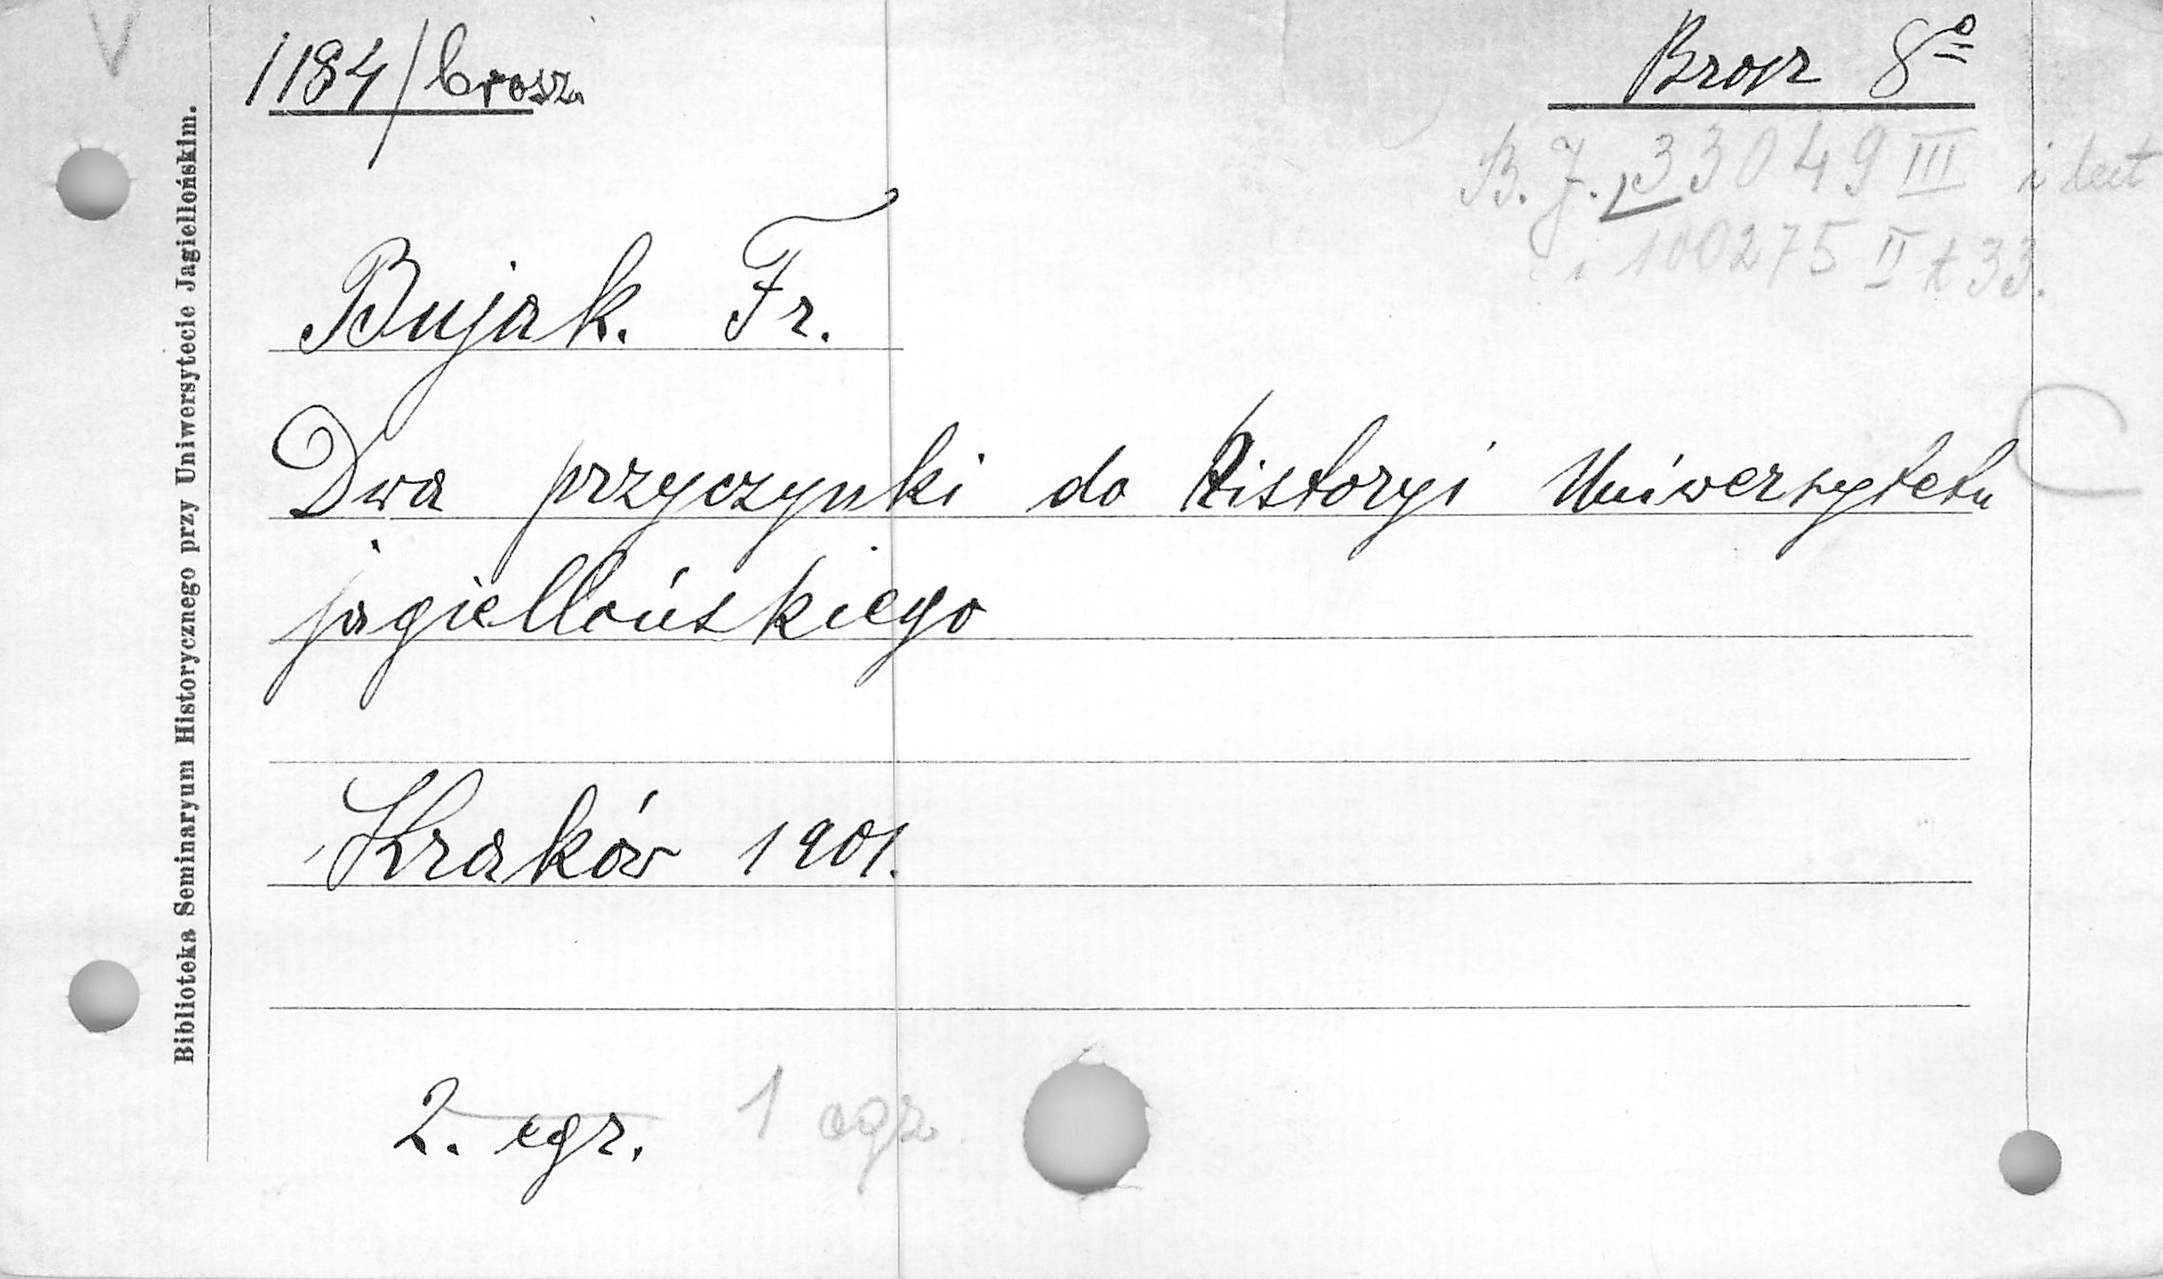 V
1184/brosz.
Brosz 8º
B. J. 33049 III i
i 100275 II t 33.
Bujak. Fr.
Dwa przyczynki do historyi Uniwersytetu
jagiellońskiego
Kraków 1901.
2. egz. 1 egz.
Biblioteka Seminaryum Historycznego przy Uniwersytecie Jagiellońskim.